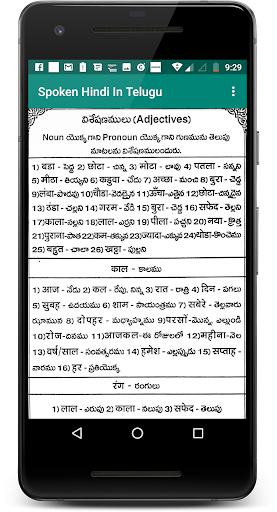 9:29
Spoken Hindi In Telugu
విశేషణములు (Adjectives)
Noun యొక్క గాని Pronoun యొక్క గాని గుణమును తెలుపు
మాటలను విశేషణములందురు.
1) बडा - పెద్ద 2) छोटा - చిన్న 3) मोठा - లావు 4) पतला - సన్నని
5) मीठा - తియ్యని 6) कडुवा - చేదు 7) अच्छा - మంచి 8) बुरा - చెడ్డ
9) लंबा-పొడవు 10) चौडा-వెడల్పైన 11) ऊँचा-ఎత్తైన 12) छोटा-చిన్నదైన
13) ठंडा - చల్లని 14) गरम - వేడి 15) बुरा - చెడ్డ 16) सफेद - తెల్లని
17) काला-నల్లని 18) लाल-ఎర్రని 19) पीला - పచ్చని 20) नया - క్రొత్త
21) पुराना-పాత 22) कम-తక్కువ 23) ज्यादा-ఎక్కువ 24) थोडा-కొంచెము
25) बहुत - చాలా 26) खट्टा - పుల్లని
काल - కాలము
1) आज - నేడు 2) कल - రేపు, నిన్న 3) रात - రాత్రి 4) दिन - పగలు
5) सुबह - ఉదయము 6) शाम - సాయంత్రము 7) सबेरे - తెల్లవారు
ఝామున 8) दोपहर - మధ్యాహ్నము 9) परसों-మొన్న, ఎల్లుండి
10) रोज-దినము 11) आजकल-ఈ రోజులలో 12) महीना-నెల
13) वर्ष/साल - సంవత్సరము 14) हमेश - ఎల్లప్పుడు 15) सप्ताह -
వారము 16) हर - ప్రతియొక్క
रंग - రంగులు
1) लाल - ఎరుపు 2) काला - నలుపు 3) सफेद - తెలుపు